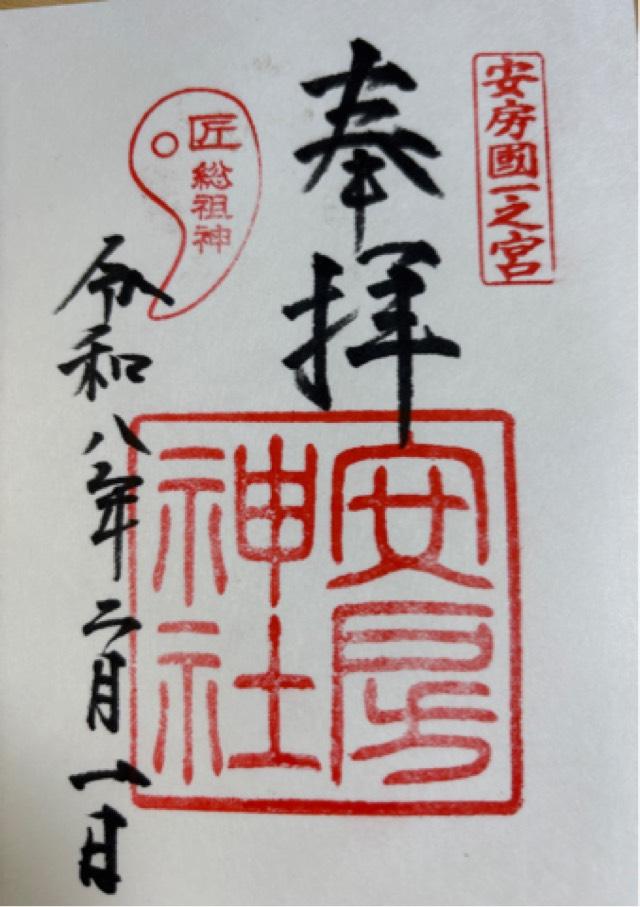 安房國一之宮
奉拝
安房
神社
匠
総祖神
令和八年二月一日